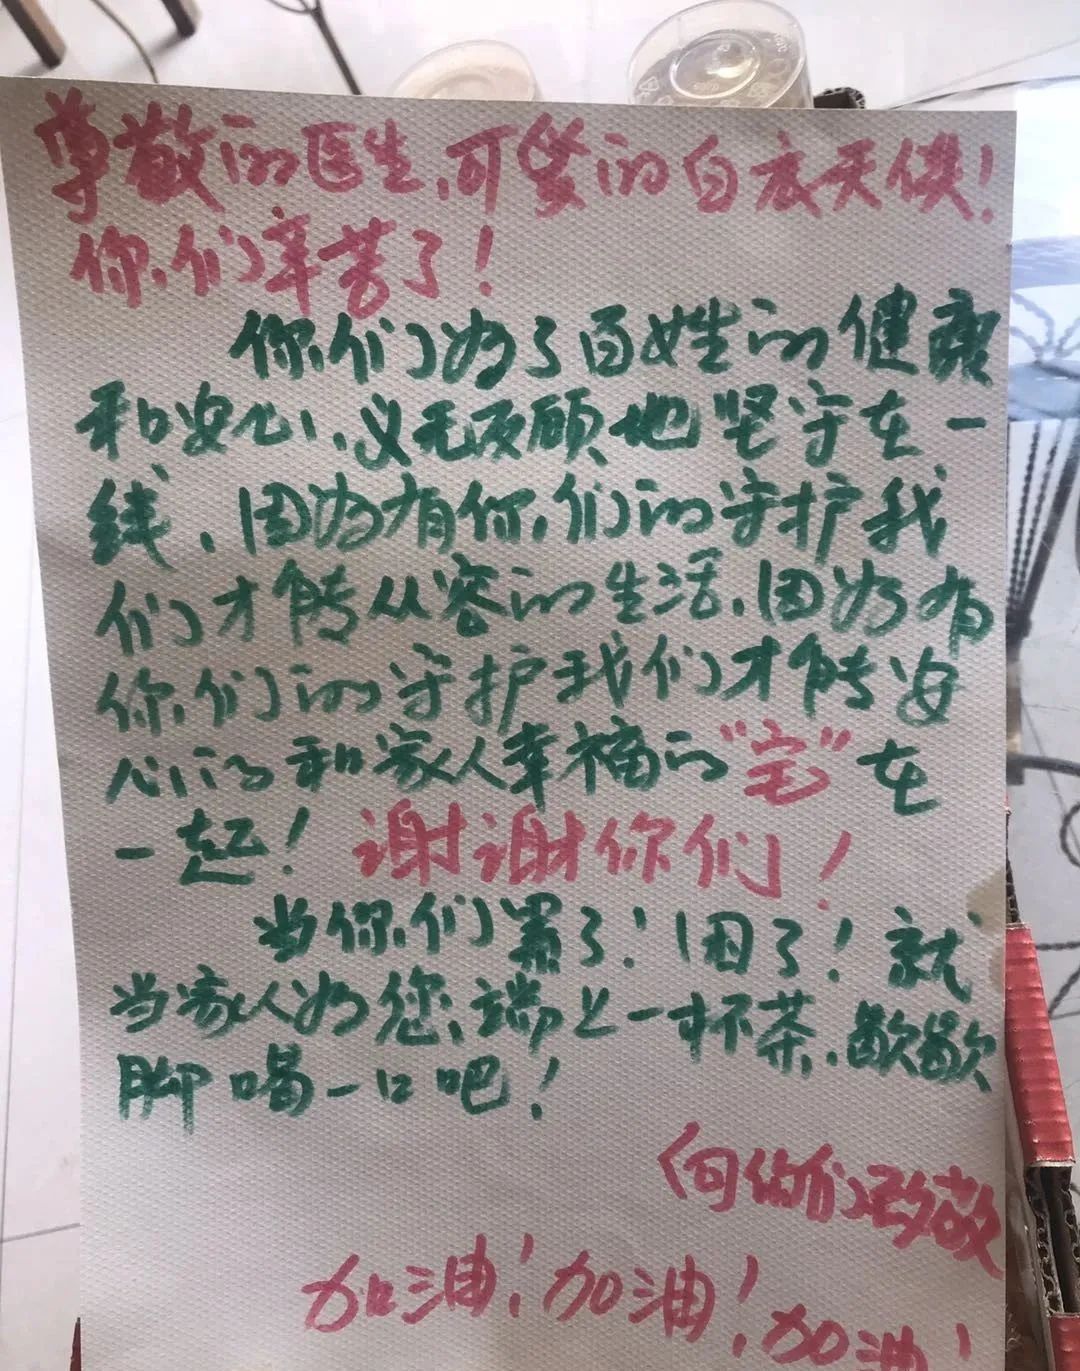 尊敬的医生,可爱的白衣天使!
你们辛苦了!
你们为了百姓的健康
和安心,义无反顾地坚守在一
线,因为有你们的守护我
们才能从容的生活,因为有
你们的守护我们才能安
心的和家人幸福的“宅”在
一起!谢谢你们!
当你们累了!困了!就
当家人为您端上一杯茶,歇歇
脚喝一口吧!
向你们致敬
加油!加油!加油!